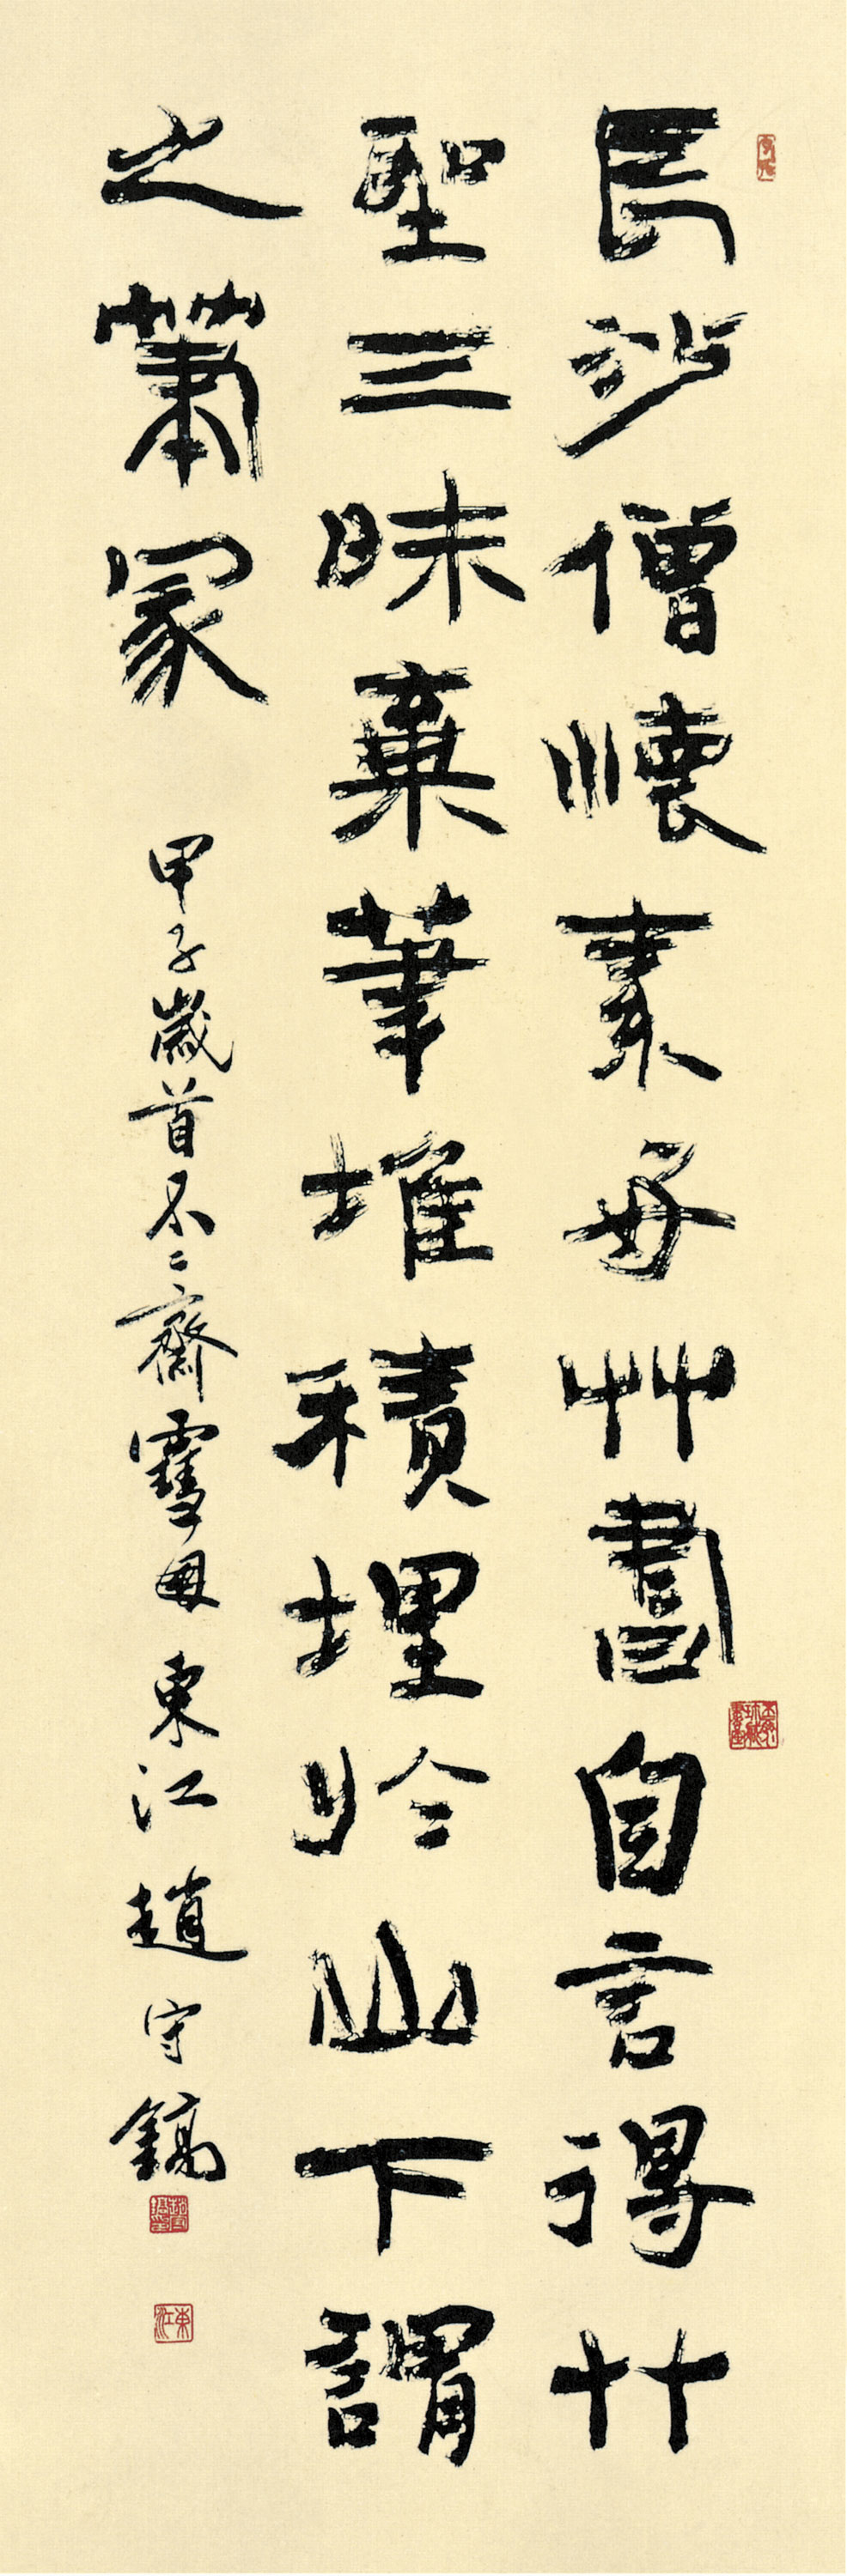 長沙僧懷素好艸書自言得艸
聖三昧棄筆堆積埋於山下謂
之筆冢 甲子歲首不二齋雪 東江趙守鎬
東江